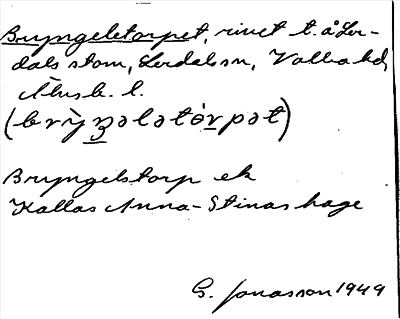 Bryngeletorpet, rivet t. å Ler-
dals stom, Lerdals sn, Valbo hd,
Älvsb. l.
(brỳŋələtòrpət)
Bryngelstorp ek
Kallas Anna-Stinas hage
G. Jonasson 1949